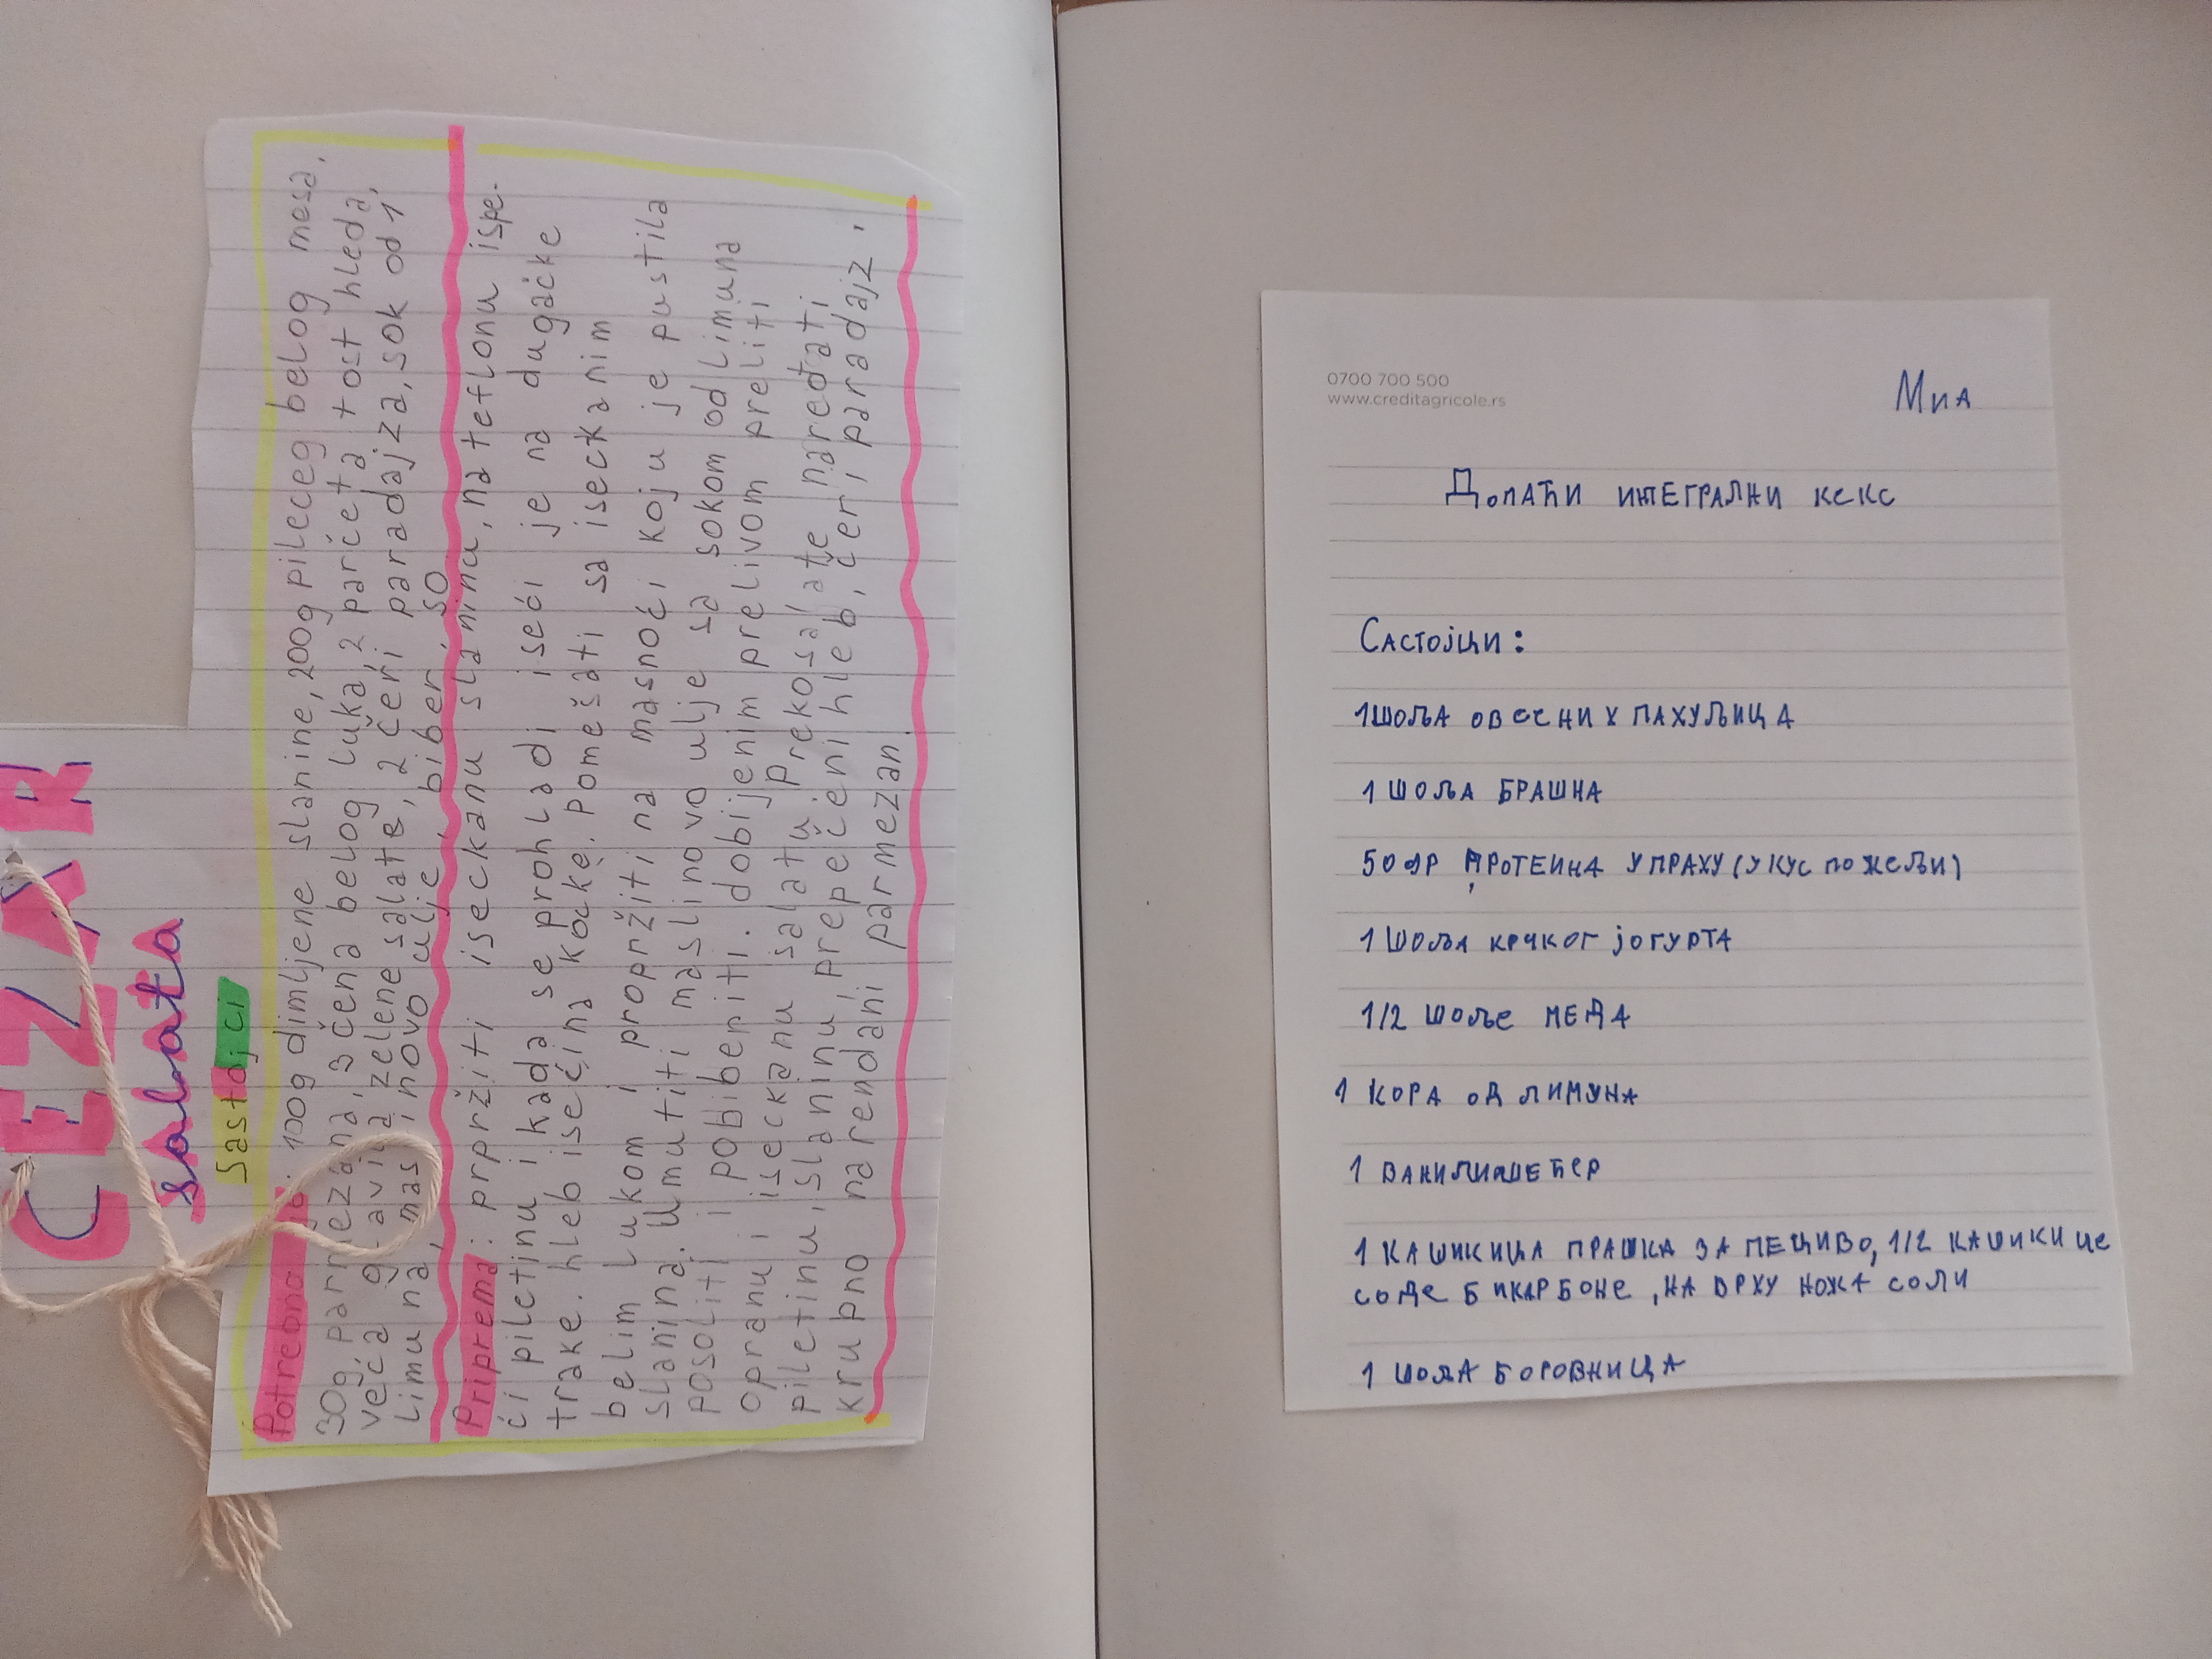 CEZAR
salata
Sastojci
Potrebno je: 100g dimljene slanine, 200g pileceg belog mesa,
30g parmezana, 3 čena belog luka, 2 parćeta tost hleba,
veća g-avica zelene salate, 2 čeri paradajza, sok od 1
limuna, maslinovo ulje, biber, so
Priprema: prpržiti iseckanu slaninu, na teflonu ispe-
ći piletinu i kada se prohladi iseći je na dugačke
trake. hleb isećina kocke. Pomešati sa iseckanim
belim lukom i propržiti na masnoći koju je pustila
slanina. Umutiti maslinovo ulje sa sokom od limuna
posoliti i pobiberiti. dobijenim prelivom preliti
opranu i iseckanu salatu. prekosalate naređati
piletinu, slaninu, prepečeni hleb, čeri paradajz,
krupno narendani parmezan.
0700 700 500
www.creditagricole.rs
Миа
Допаћи интегрални кекс
Састојци:
1 шоља овсених пахуљица
1 шоља брашна
50 гр протеина у праху (укус по жељи)
1 шоља крчког јогурта
1/2 шоље меда
1 кора од лимуна
1 ванилишећер
1 кашикица прашка за пециво, 1/2 кашикице
соде бикарбоне, на врху ножа соли
1 шоља боровница